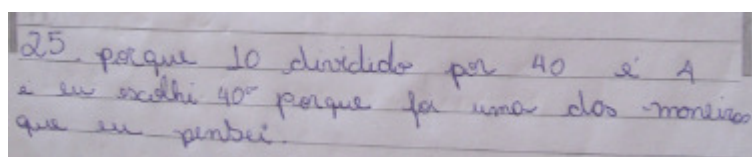 25. porque 10 dividido por 40 é 4
e eu escolhi 40° porque foi uma das moneiras
que eu pensei.